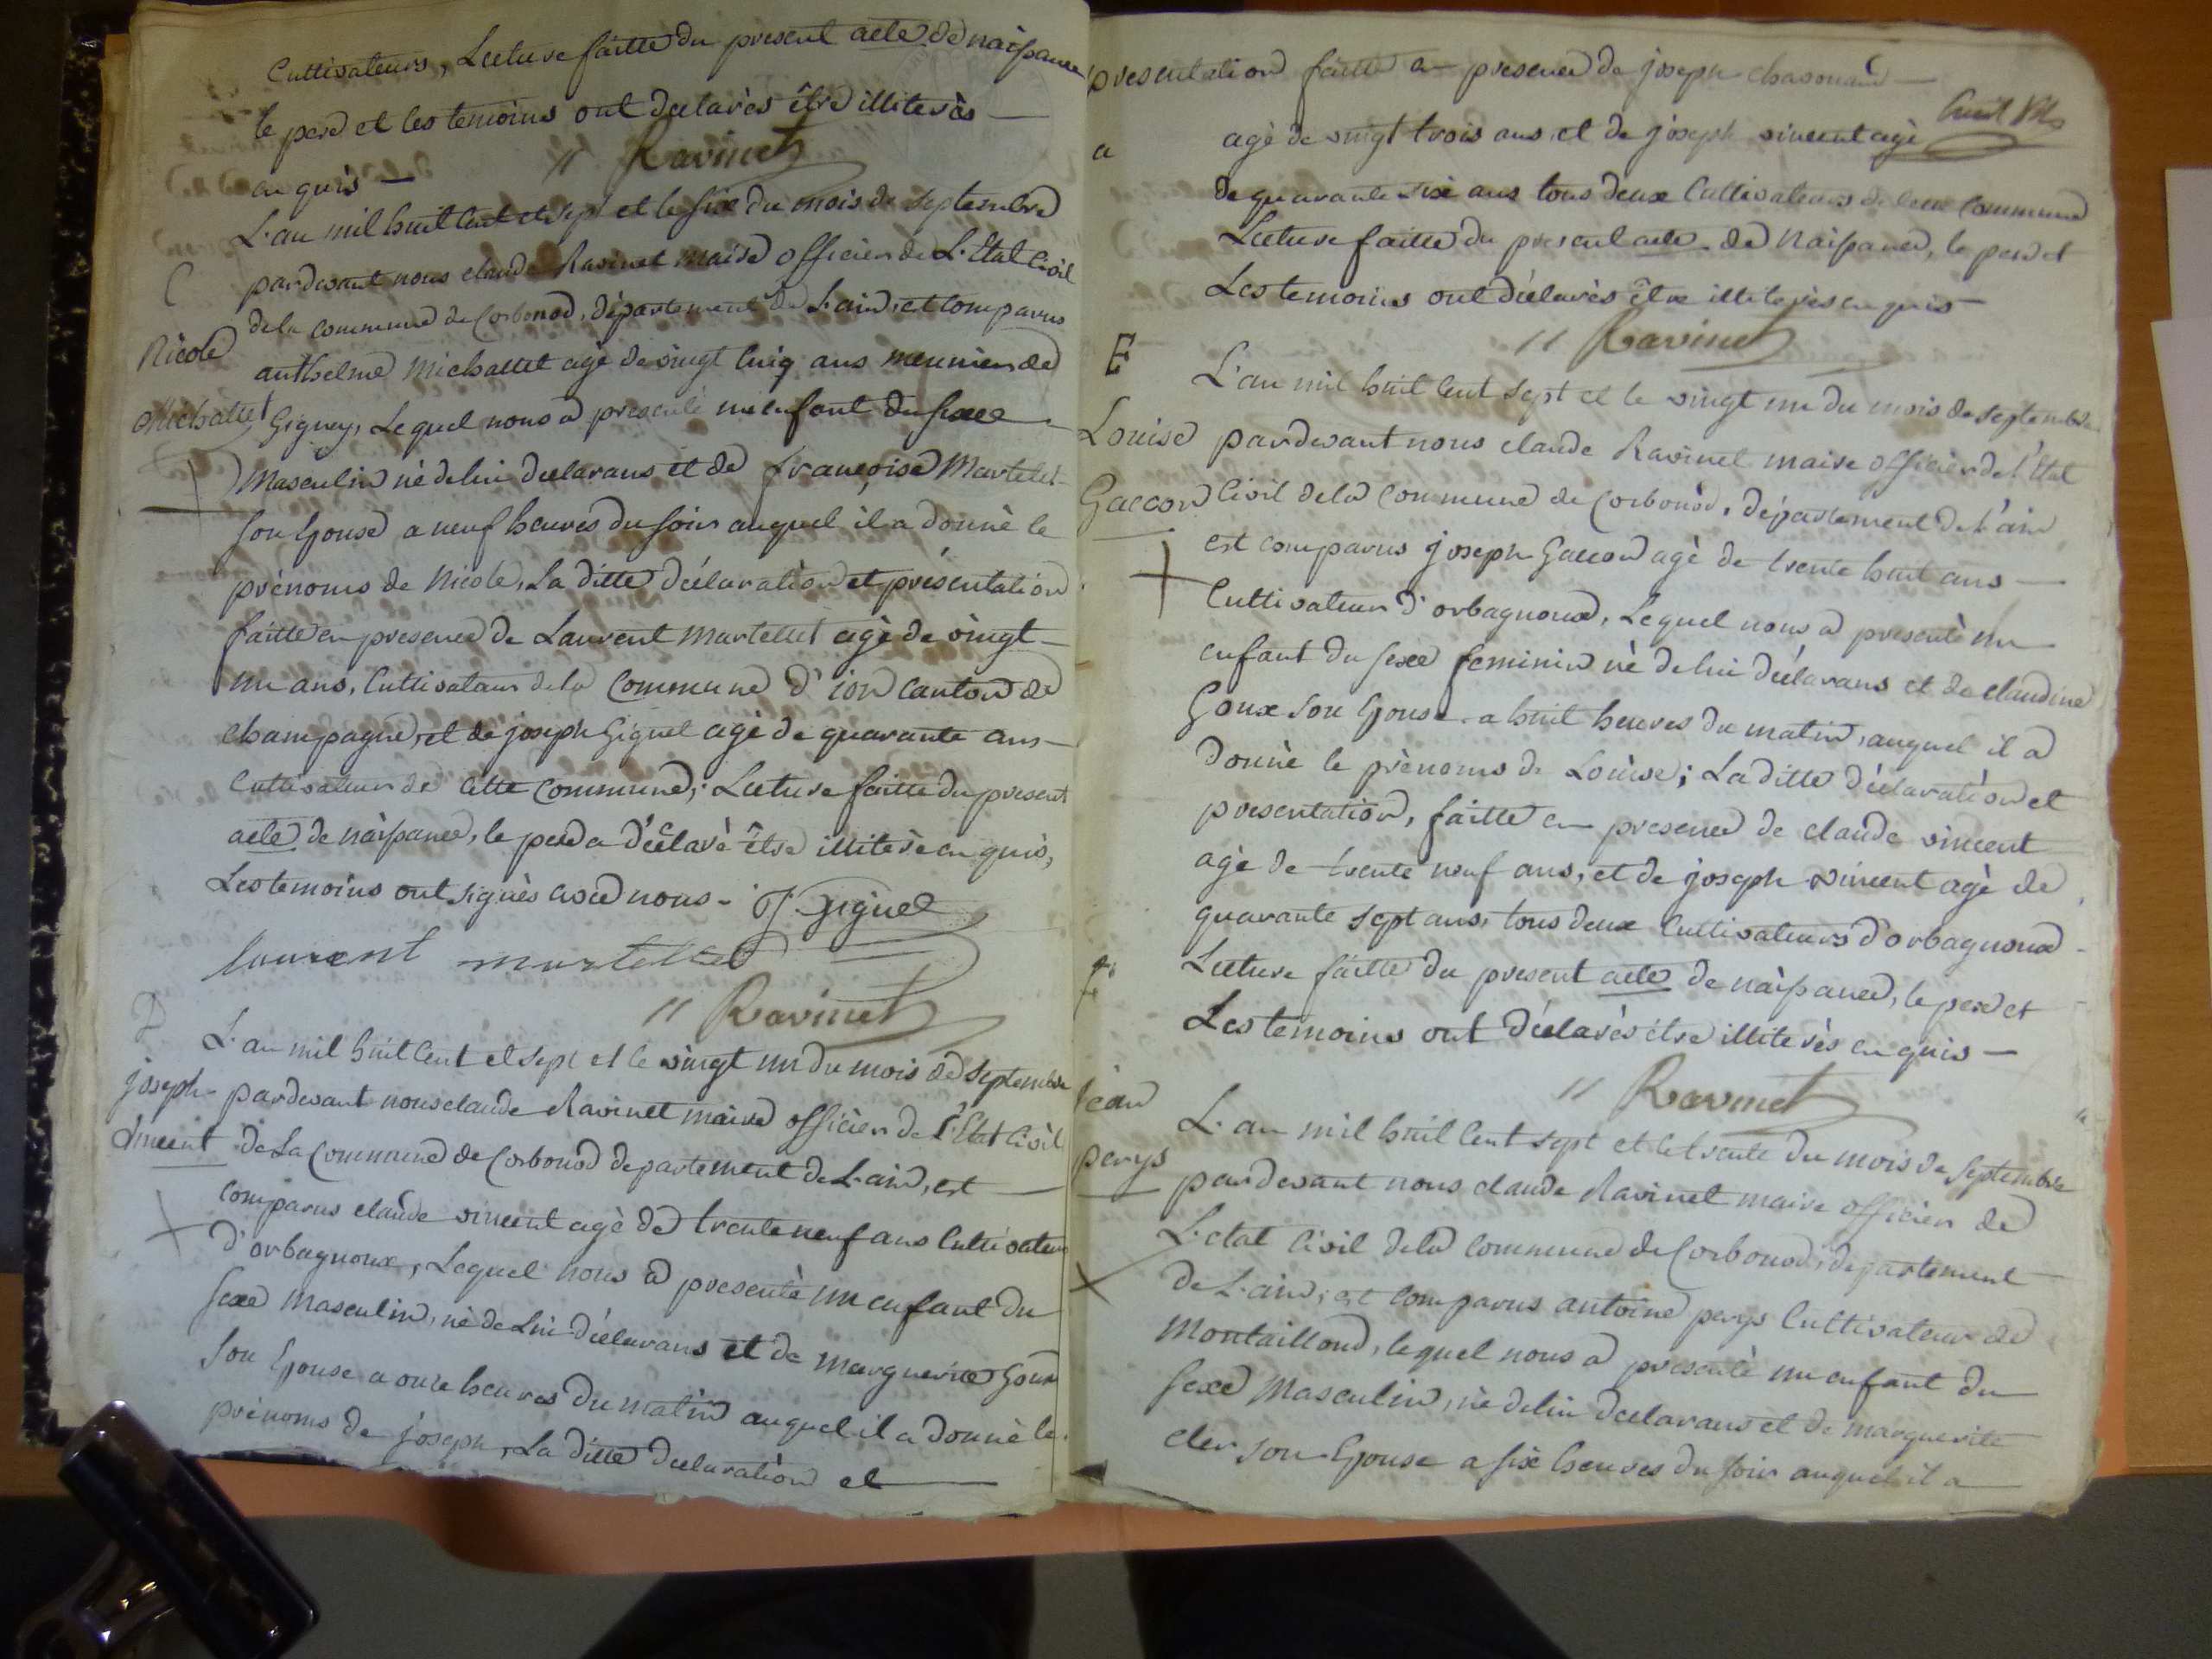 Cultivateurs, Lecture faitte du present acte de naissance
le pere et les temoins ont declarès être illiterès
en quis —
// Ravinet
C
L'an mil huit cent et sept et le six du mois de septembre
pardevant nous claude Ravinet maire officier de L'Etat Civil
de la commune de Corbonod, département de L'ain, est comparus
Nicole
Michallet
anthelme Michallet agè de vingt cinq ans meunier de
Gigney, Lequel nous a presentè un enfant du sexe
Masculin nè de lui declarans et de françoise Martelet
son Epouse a neuf heures du soir auquel il a donnè le
prénoms de Nicole, La ditte déclaration et présentation
faitte en presence de Laurent Martellet agè de vingt
un ans, Cultivateur de la Commune d'ion canton de
Champagne, et de joseph Giguet agè de quarante ans
Cultivateur de cette Commune; Lecture faitte du present
acte de nàissance, le pere a déclarè être illiterè en quis,
Les temoins ont signès avec nous. J. Giguet
laurent martellet
// Ravinet
D
L'an mil huit cent et sept et le vingt un du mois de septembre
joseph
vincent
pardevant nous claude Ravinet maire officier de L'Etat Civil
de La Commune de Corbonod departement de L'ain, est
comparus claude vincent agè de trente neuf ans Cultivateur
d'orbagnoux, Lequel nous a presentè un enfant du
sexe masculin, nè de Lui déclarans et de marguerite Goux
son Epouse a onze heures du matin auquel il a donnè le
prénoms de joseph, La ditte declaration et
presentation faitte en presence de joseph
huit
a
agè de vingt trois ans et de joseph vincent agè
de quarante six ans tous deux Cultivateurs de cette Commune
Lecture faitte du present acte de Naissance, le pere et
Les temoins ont déclarès être illiterès en quis —
// Ravinet
E
L'an mil huit cent sept et le vingt un du mois de septembre
Louise
Gaccon
pardevant nous claude Ravinet maire officier de l'Etat
Civil de la Commune de Corbonod, département de L'ain
est comparus joseph Gaccon agè de trente huit ans —
Cultivateur d'orbagnoux, Lequel nous a presentè un
enfant du sexe feminin nè de lui déclarans et de claudine
Goux son Epouse a huit heures du matin, auquel il a
donnè le prènoms de Loüise; La ditte déclaration et
presentation, faitte en presence de claude vincent
agè de trente neuf ans, et de joseph vincent agè de
quarante sept ans, tous deux Cultivateurs d'orbagnoux
Lecture faitte du present acte de nàissance, le pere et
Les temoins ont déclarès être illiterès en quis —
// Ravinet
F
jean
perys
L'an mil huit cent sept et le trente du mois de septembre
pardevant nous claude Ravinet maire officier de
L'etat Civil de la commune de Corbonod, departement
de L'ain, est comparus antoine perys Cultivateur de
Montailloud, lequel nous a presentè un enfant du
sexe Masculin, nè de lui declarans et de marguerite
cler son Epouse a six heures du soir auquel il a